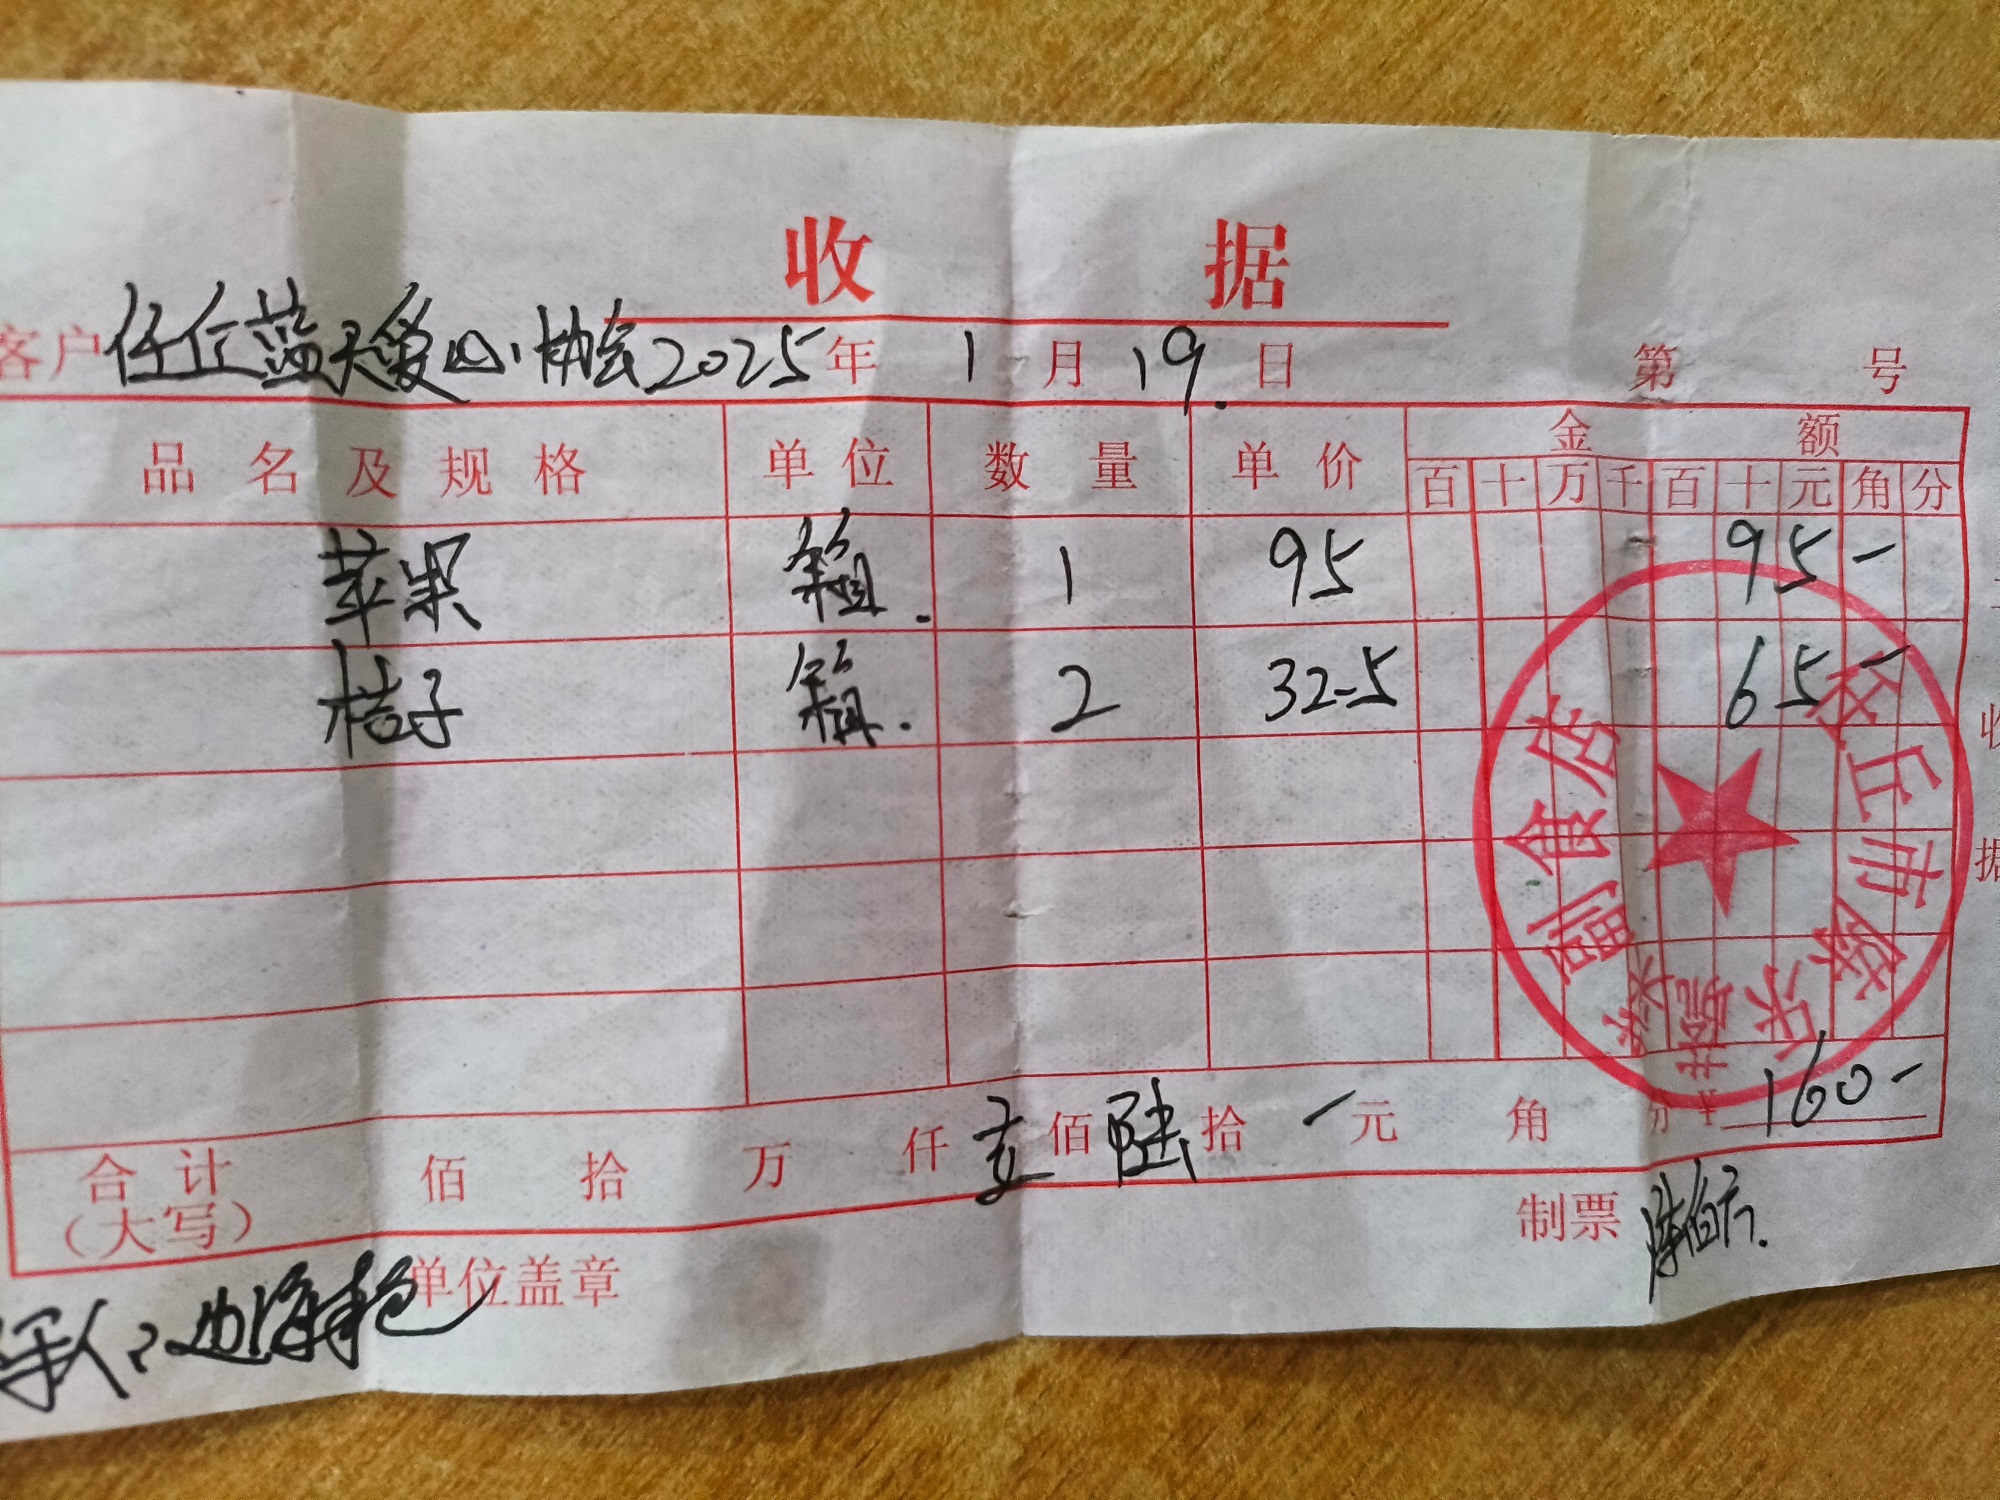 收 据
客户 任丘蓝天爱心协会 2025 年 1 月 19 日 第 号
品名及规格 单位 数量 单价 金额
百 十 万 千 百 十 元 角 分
苹果 箱 1 95 95-
桔子 箱 2 32.5 65-
合计 佰 拾 万 仟 壹 佰 陆 拾 - 元 角 分 ¥ 160-
(大写)
单位盖章 制票
收
据
任丘市
副食店